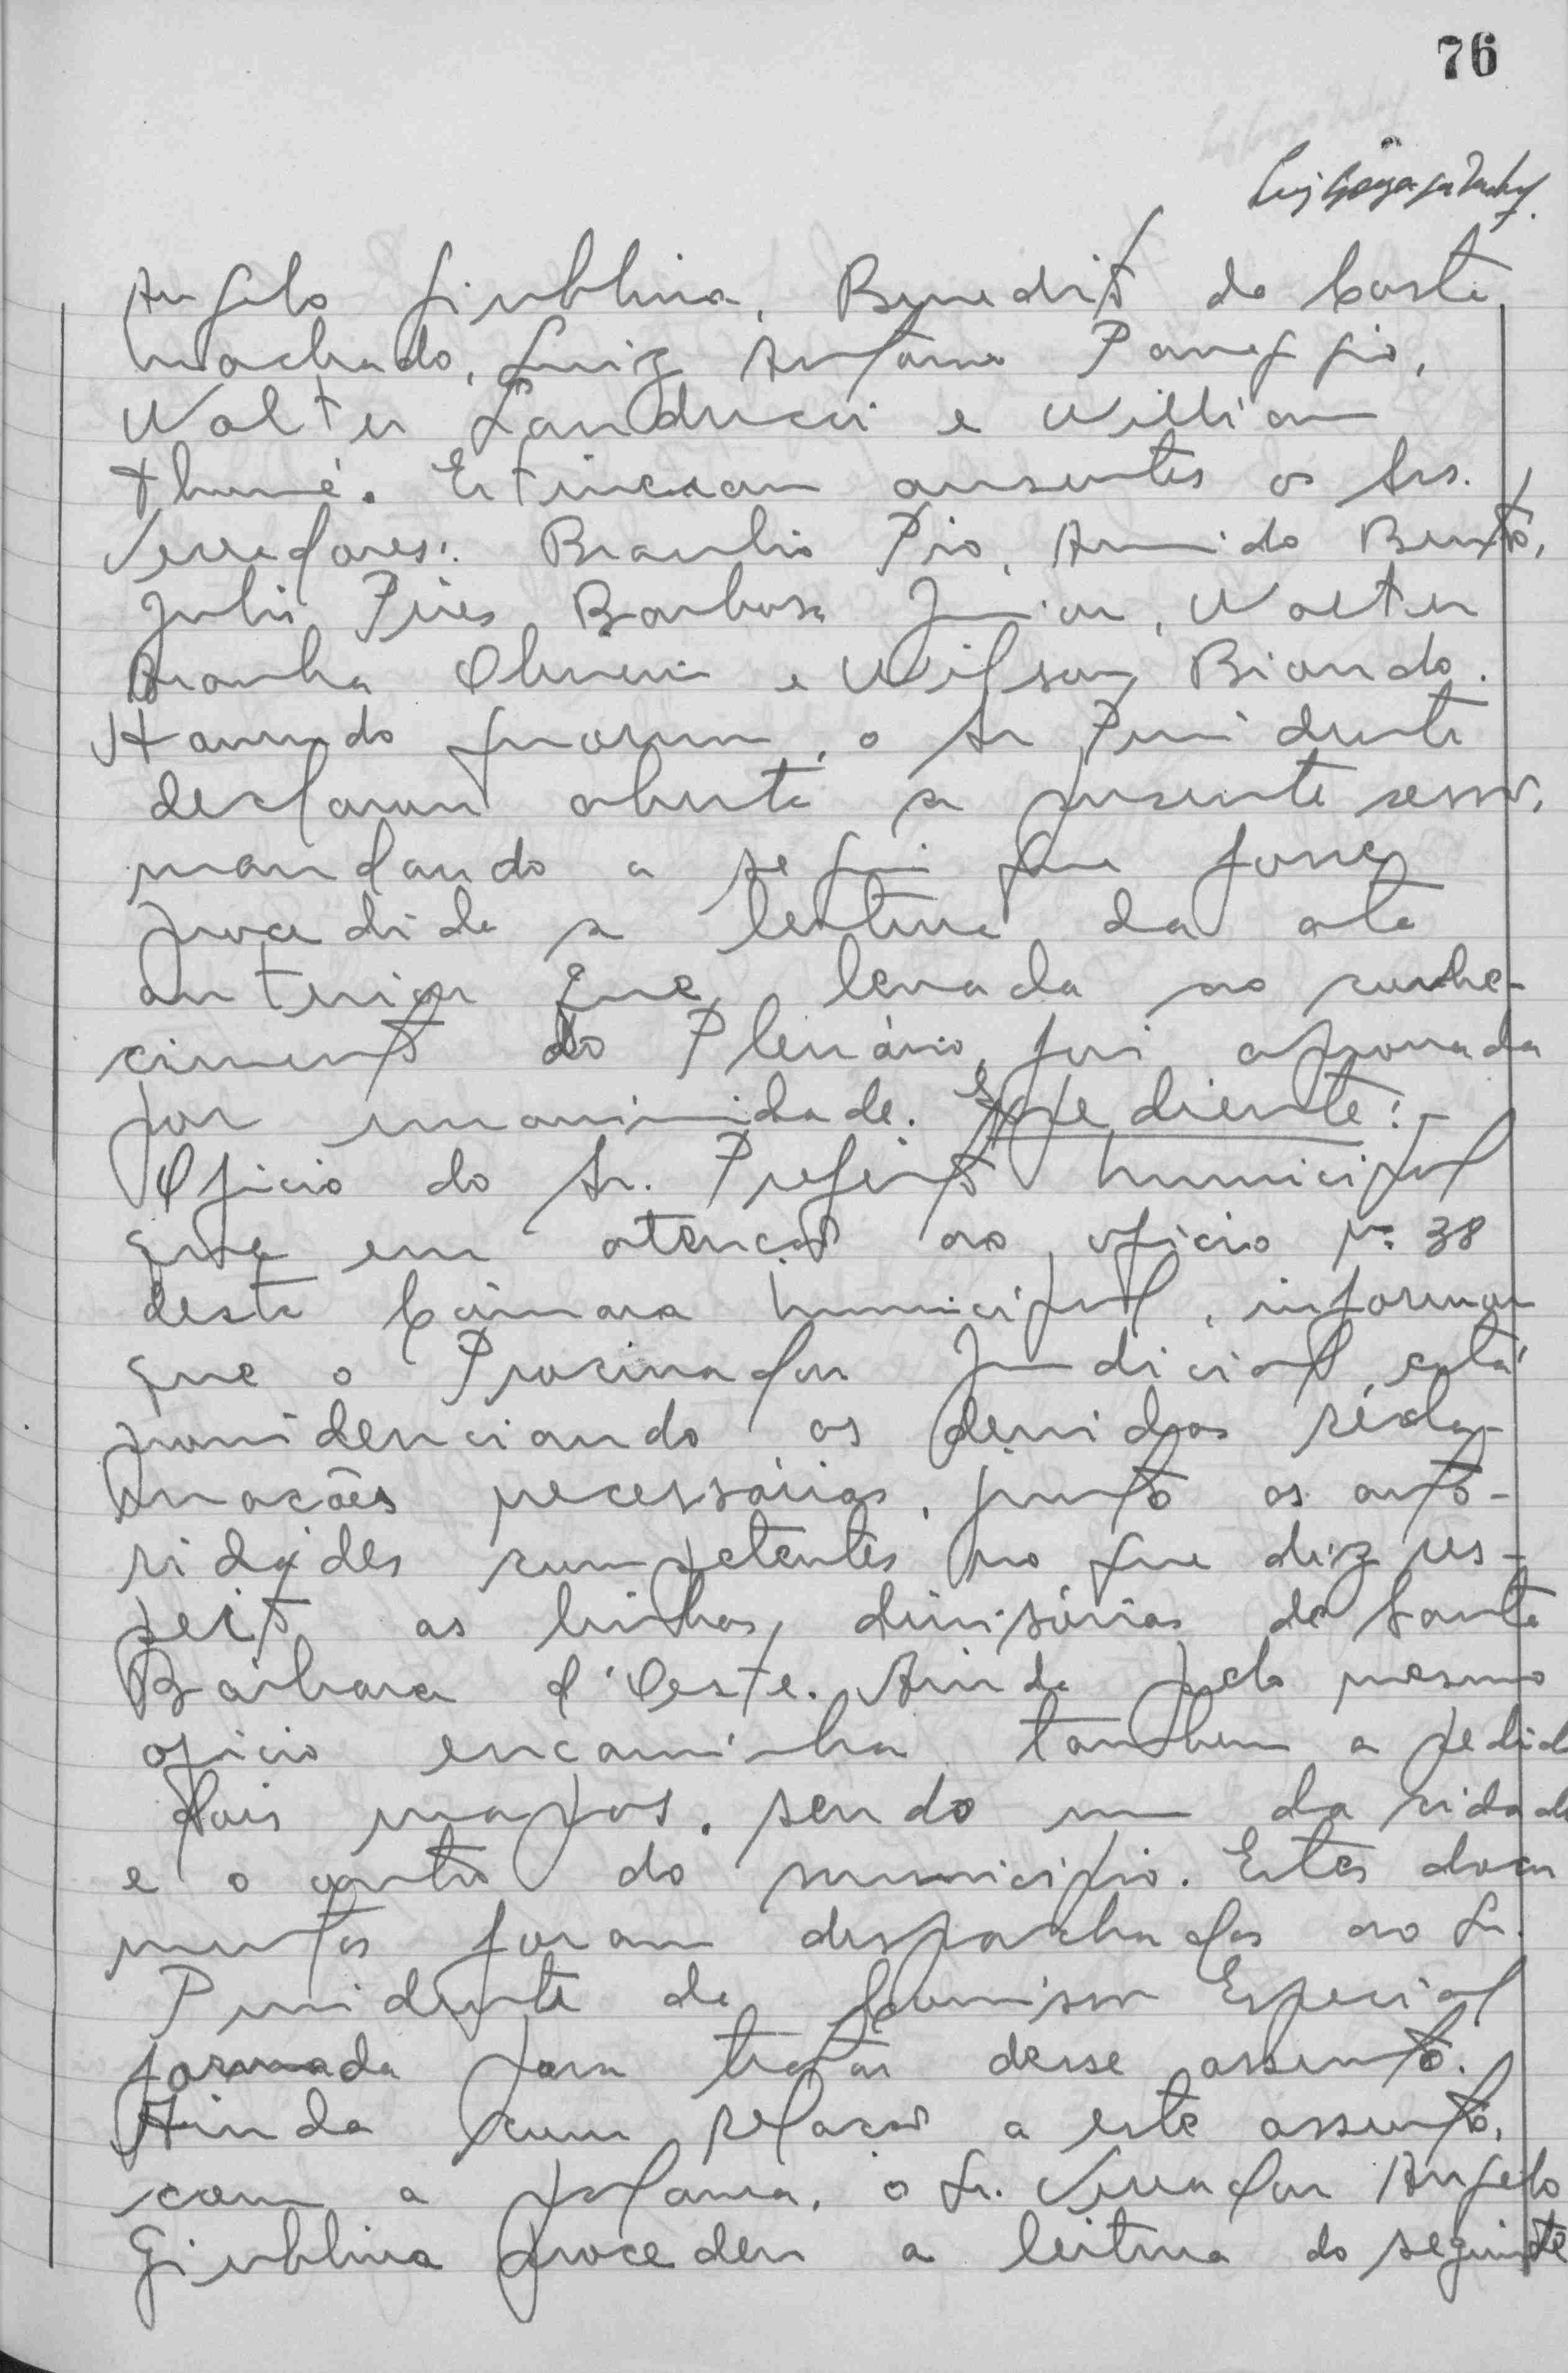 76
Angelo Giubbina, Benedito da Costa
Machado, Luiz Antonio Panaggio,
Walter Landucci e William
Thomé. Estiveram ausentes os Srs.
Vereadores: Braulio Pio, Armindo Bento,
Julio Pires Barbosa Junior, Walter
Aranha Oliveira e Wilson Biondo.
Havendo quorum, o Sr Presidente
declarou aberta a presente sessão,
mandando a seguir que fosse
procedida a leitura da ata
anterior que levada ao conhe-
cimento do Plenário, foi aprovada
por unanimidade. Expediente:-
Oficio do Sr. Prefeito Municipal
que em atenção ao oficio nº 38
desta Câmara Municipal, informar
que o Procurador Judicial, está
providenciando os devidos recla-
mações necessárias, junto as auto-
ridades competentes no que diz res-
peito as linhas divisórias de Santa
Bárbara d'Oeste. Ainda pelo mesmo
oficio encaminha tambem a pedido
dois mapas, sendo um da cidade
e o outro do municipio. Estes docu
mentos foram despachados ao Sr.
Presidente da Comissão Especial
formada para tratar desse assunto.
Ainda com relação a este assunto,
com a palavra, o Sr. Vereador Angelo
Giubbina procedeu a leitura do seguinte